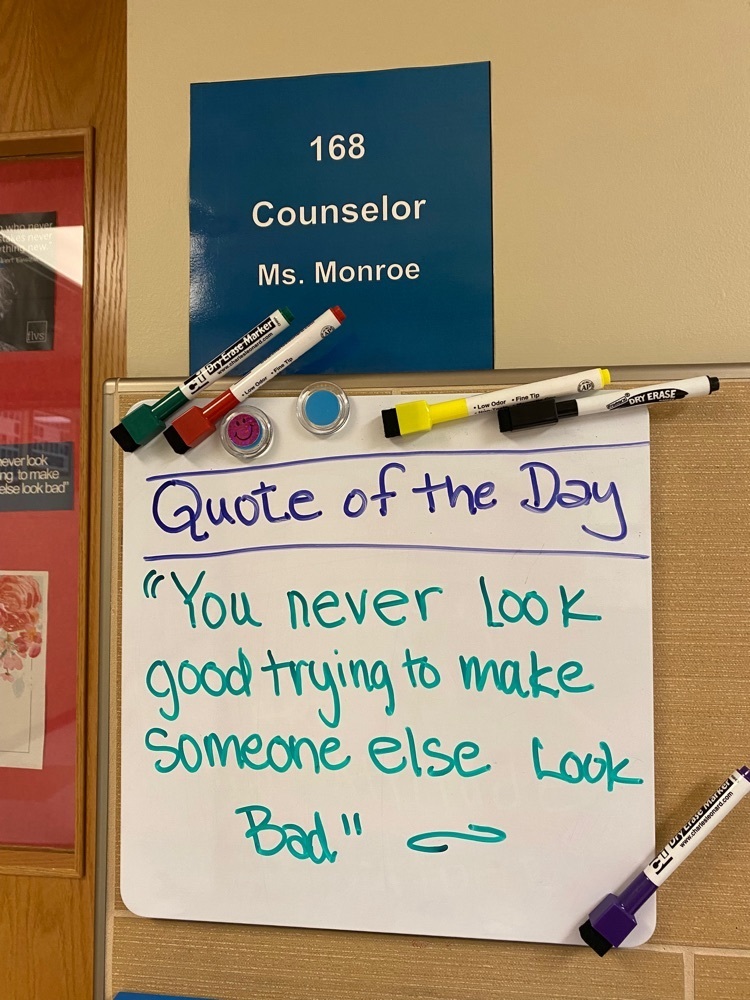 168
Counselor
Ms. Monroe
who never
new."
flvs
never look
ng to make
else look bad"
Dry Erase Marker
www.charlesleonard.com
• Low Odor • Fine Tip
AP
• Low Odor • Fine Tip
AP
DRY ERASE
Quote of the Day
"You never Look
good trying to make
Someone else Look
Bad"
Dry Erase Marker
www.charlesleonard.com